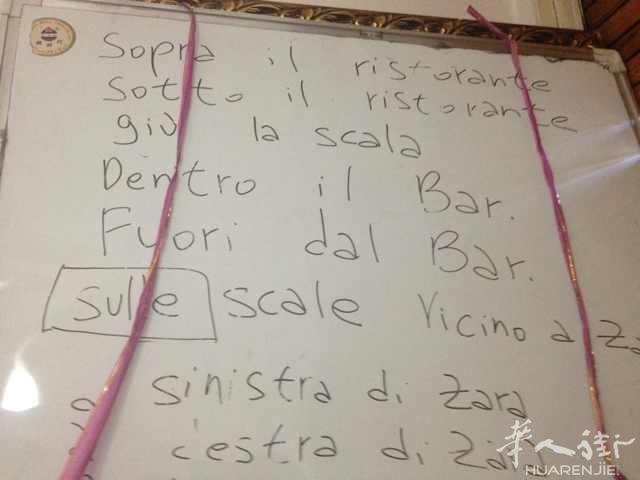 Sopra il ristorante
Sotto il ristorante
giù la scala
Dentro il Bar.
Fuori dal Bar.
sulle scale Vicino a
sinistra di Zara
destra di Zara
华人街
HUARENJIE